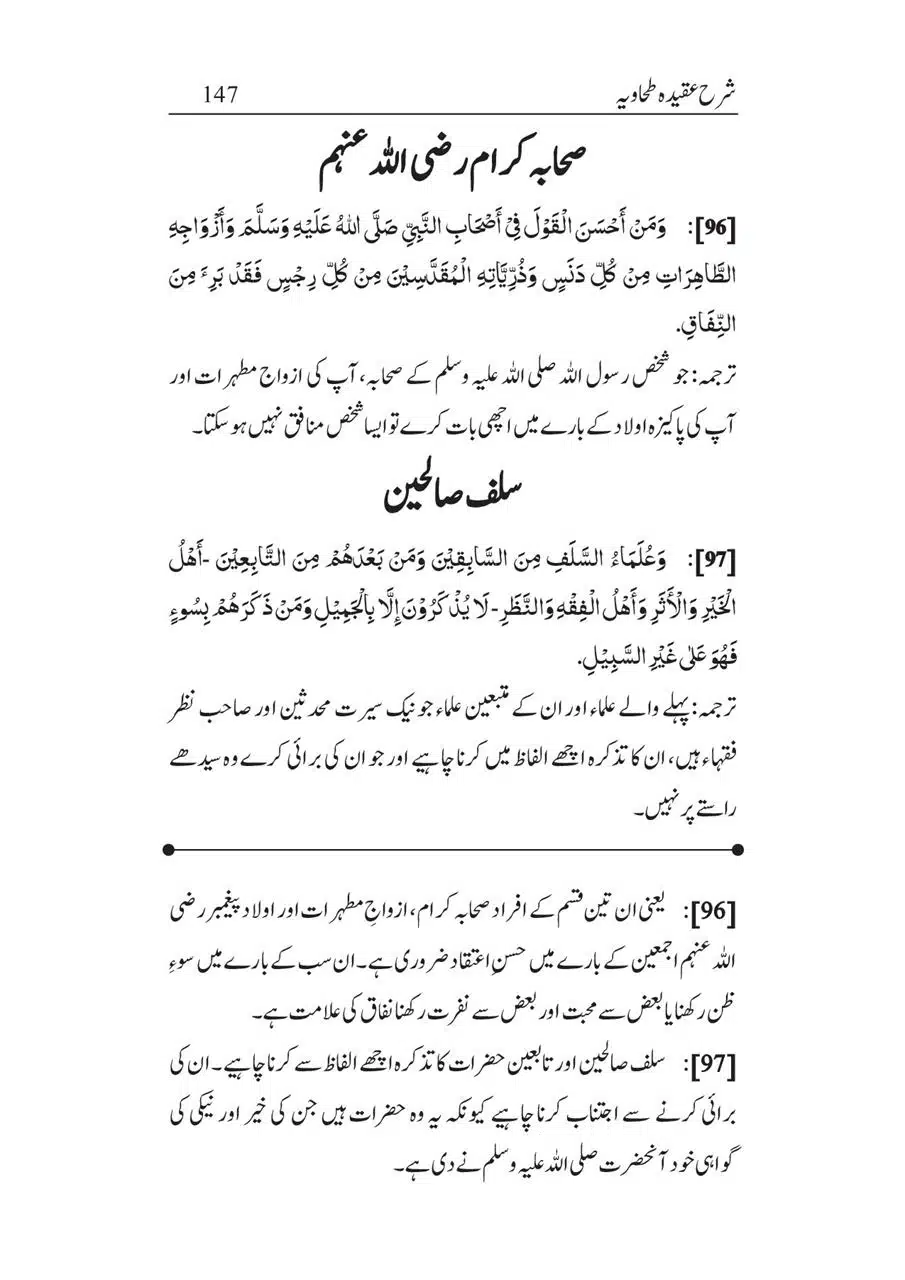 شرح عقیدہ طحاویہ 147
صحابہ کرام رضی اللہ عنہم
[96]: وَمَنْ أَحْسَنَ الْقَوْلَ فِيْ أَصْحَابِ النَّبِيِّ صَلَّى اللهُ عَلَيْهِ وَسَلَّمَ وَأَزْوَاجِهِ
الطَّاهِرَاتِ مِنْ كُلِّ دَنَسٍ وَذُرِّيَّاتِهِ الْمُقَدَّسِيْنَ مِنْ كُلِّ رِجْسٍ فَقَدْ بَرِءَ مِنَ
النِّفَاقِ.
ترجمہ: جو شخص رسول اللہ صلی اللہ علیہ وسلم کے صحابہ، آپ کی ازواج مطہرات اور
آپ کی پاکیزہ اولاد کے بارے میں اچھی بات کرے تو ایسا شخص منافق نہیں ہو سکتا۔
سلف صالحین
[97]: وَعُلَمَاءُ السَّلَفِ مِنَ السَّابِقِيْنَ وَمَنْ بَعْدَهُمْ مِنَ التَّابِعِيْنَ -أَهْلُ
الْخَيْرِ وَالْأَثَرِ وَأَهْلُ الْفِقْهِ وَالنَّظَرِ- لَا يُذْكَرُوْنَ إِلَّا بِالْجَمِيْلِ وَمَنْ ذَكَرَهُمْ بِسُوءٍ
فَهُوَ عَلٰى غَيْرِ السَّبِيْلِ.
ترجمہ: پہلے والے علماء اور ان کے متبعین علماء جو نیک سیرت محدثین اور صاحب نظر
فقہاء ہیں، ان کا تذکرہ اچھے الفاظ میں کرنا چاہیے اور جو ان کی برائی کرے وہ سیدھے
راستے پر نہیں۔
[96]: یعنی ان تین قسم کے افراد صحابہ کرام، ازواجِ مطہرات اور اولاد پیغمبر رضی
اللہ عنہم اجمعین کے بارے میں حسنِ اعتقاد ضروری ہے۔ ان سب کے بارے میں سوءِ
ظن رکھنا یا بعض سے محبت اور بعض سے نفرت رکھنا نفاق کی علامت ہے۔
[97]: سلف صالحین اور تابعین حضرات کا تذکرہ اچھے الفاظ سے کرنا چاہیے۔ ان کی
برائی کرنے سے اجتناب کرنا چاہیے کیونکہ یہ وہ حضرات ہیں جن کی خیر اور نیکی کی
گواہی خود آنحضرت صلی اللہ علیہ وسلم نے دی ہے۔